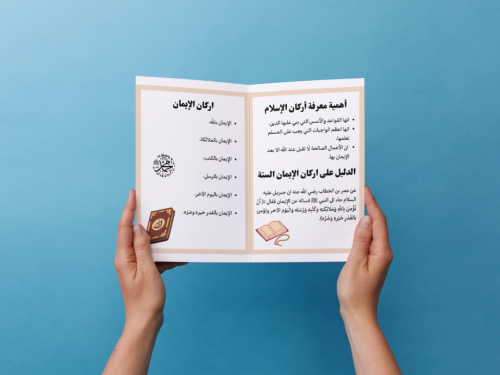 أهمية معرفة أركان الإسلام
انها القواعد والأسس التي بني عليها الدين.
انها اعظم الواجبات التي يجب على المسلم
تعلمها.
ان الأعمال الصالحة لا تقبل عند الله الا بعد
الإيمان بها.
الدليل على اركان الإيمان الستة
عن عمر بن الخطاب رضي الله عنه ان جبريل عليه
السلام جاء الى النبي ﷺ فسأله عن الإيمان فقال :( أَنْ
تُؤْمِنَ بِاللَّهِ وَمَلَائِكَتِهِ وَكُتُبِهِ وَرُسُلِهِ وَالْيَوْمِ الآخِرِ وَتُؤْمِنَ
بِالْقَدَرِ خَيْرِهِ وَشَرِّهِ).
اركان الإيمان
الإيمان بالله.
الإيمان بالملائكة.
الإيمان بالكتب.
الإيمان بالرسل.
الإيمان باليوم الآخر.
الإيمان بالقدر خيره وشره.